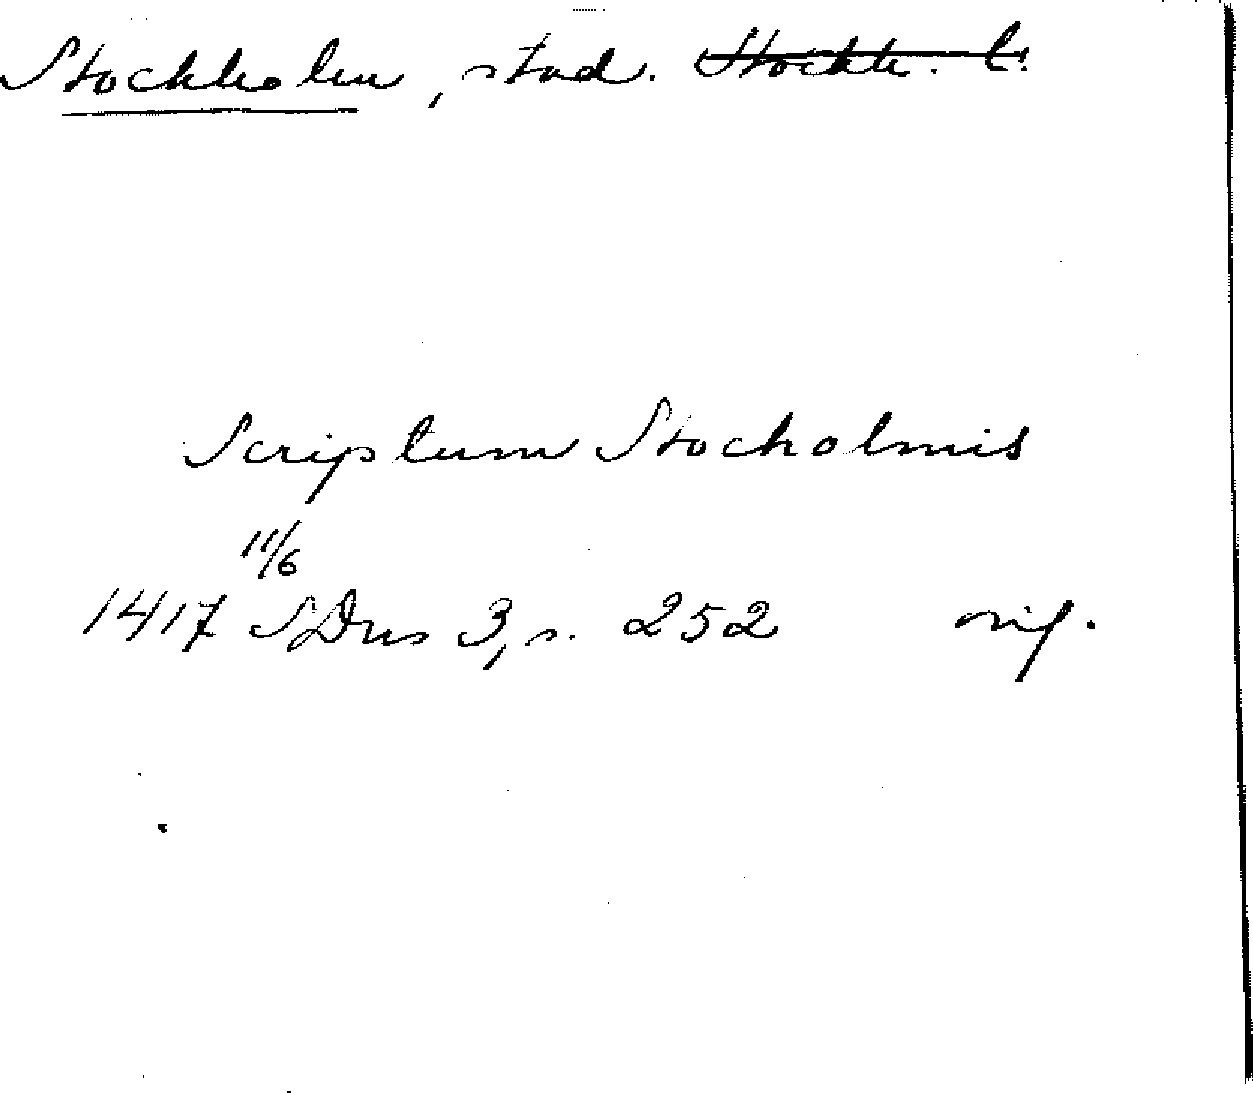 Stockholm, stad. Stockh. l.
Scriptum Stocholmis
11/6
1417 SDns 3, s. 252 orig.